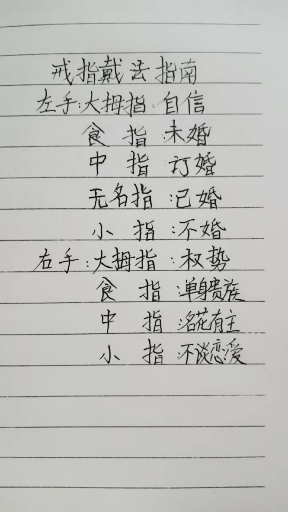 戒指戴法指南
左手:大拇指:自信
食指:未婚
中指:订婚
无名指:已婚
小指:不婚
右手:大拇指:权势
食指:单身贵族
中指:名花有主
小指:不谈恋爱